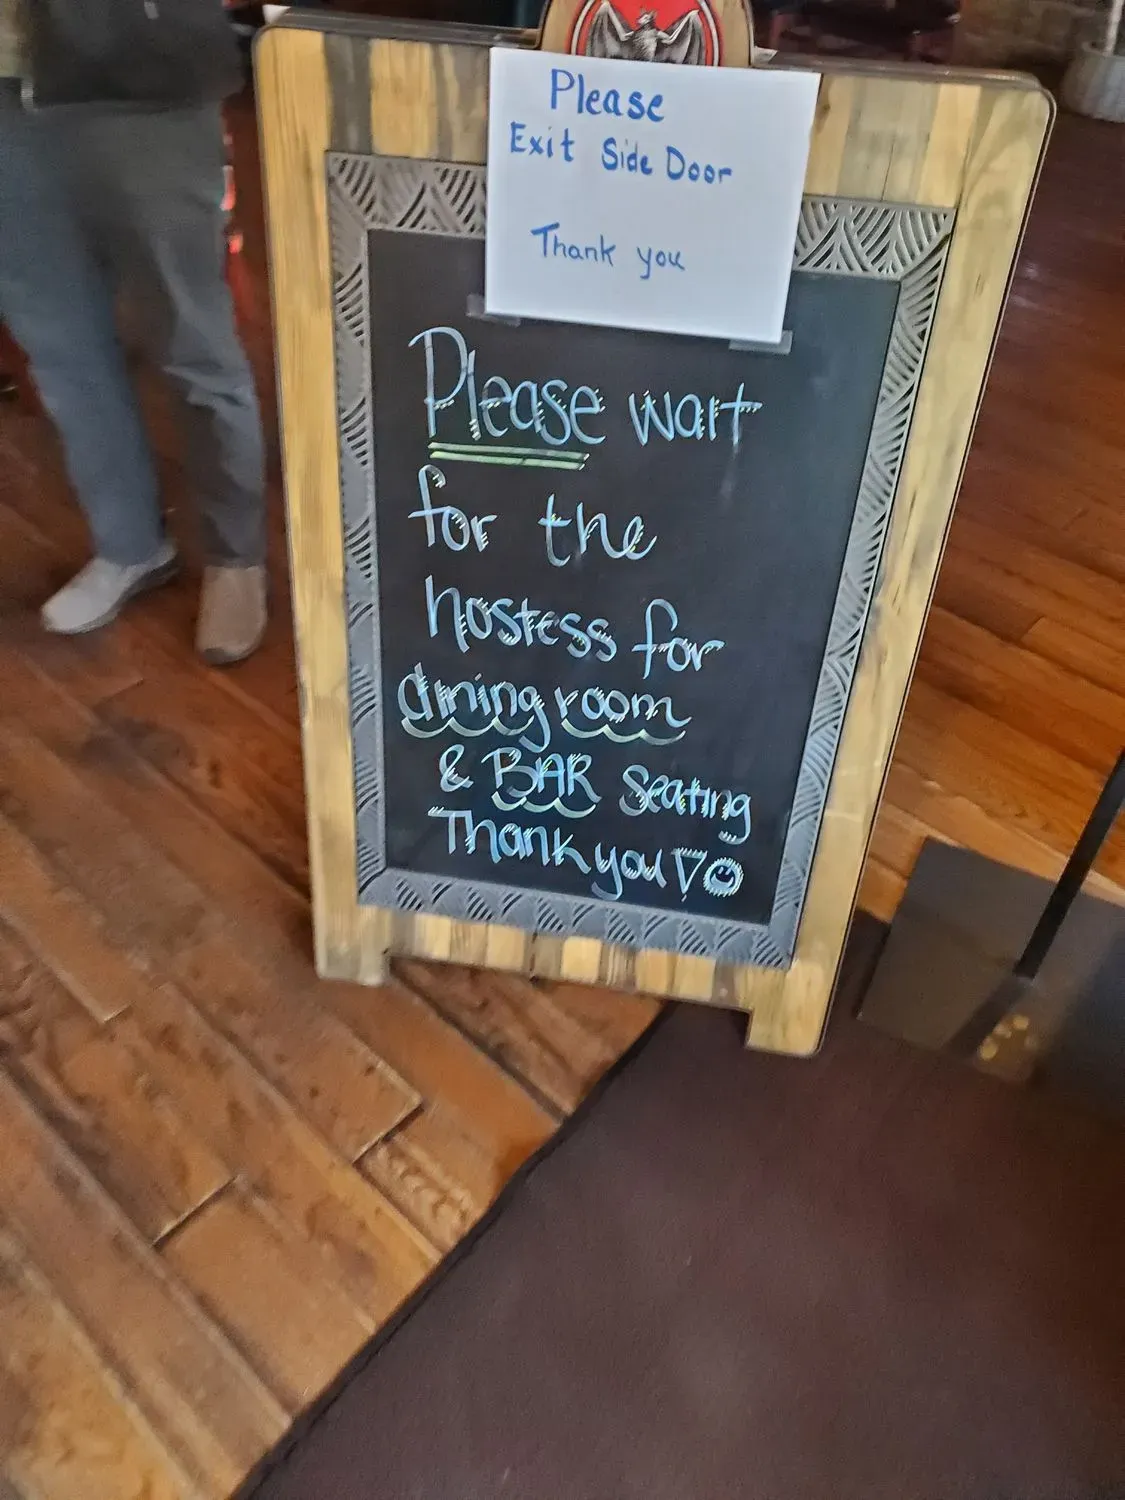 Please
Exit Side Door
Thank you
Please wait
for the
hostess for
dining room
& BAR Seating
Thank you